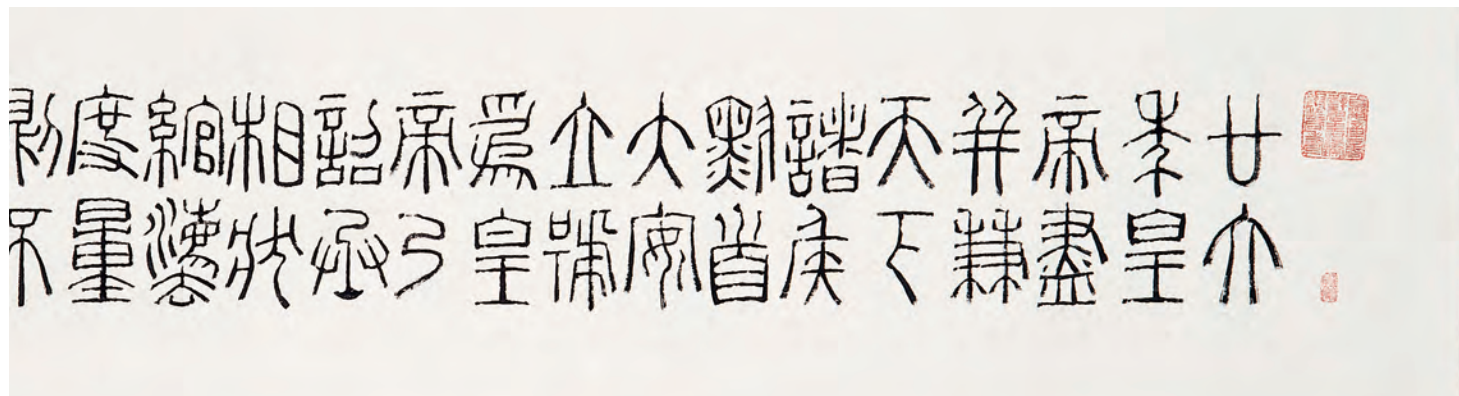 廿六
年皇
帝盡
并兼
天下
諸侯
黔首
大安
立號
爲皇
帝乃
詔丞
相狀
綰灋
度量
則不